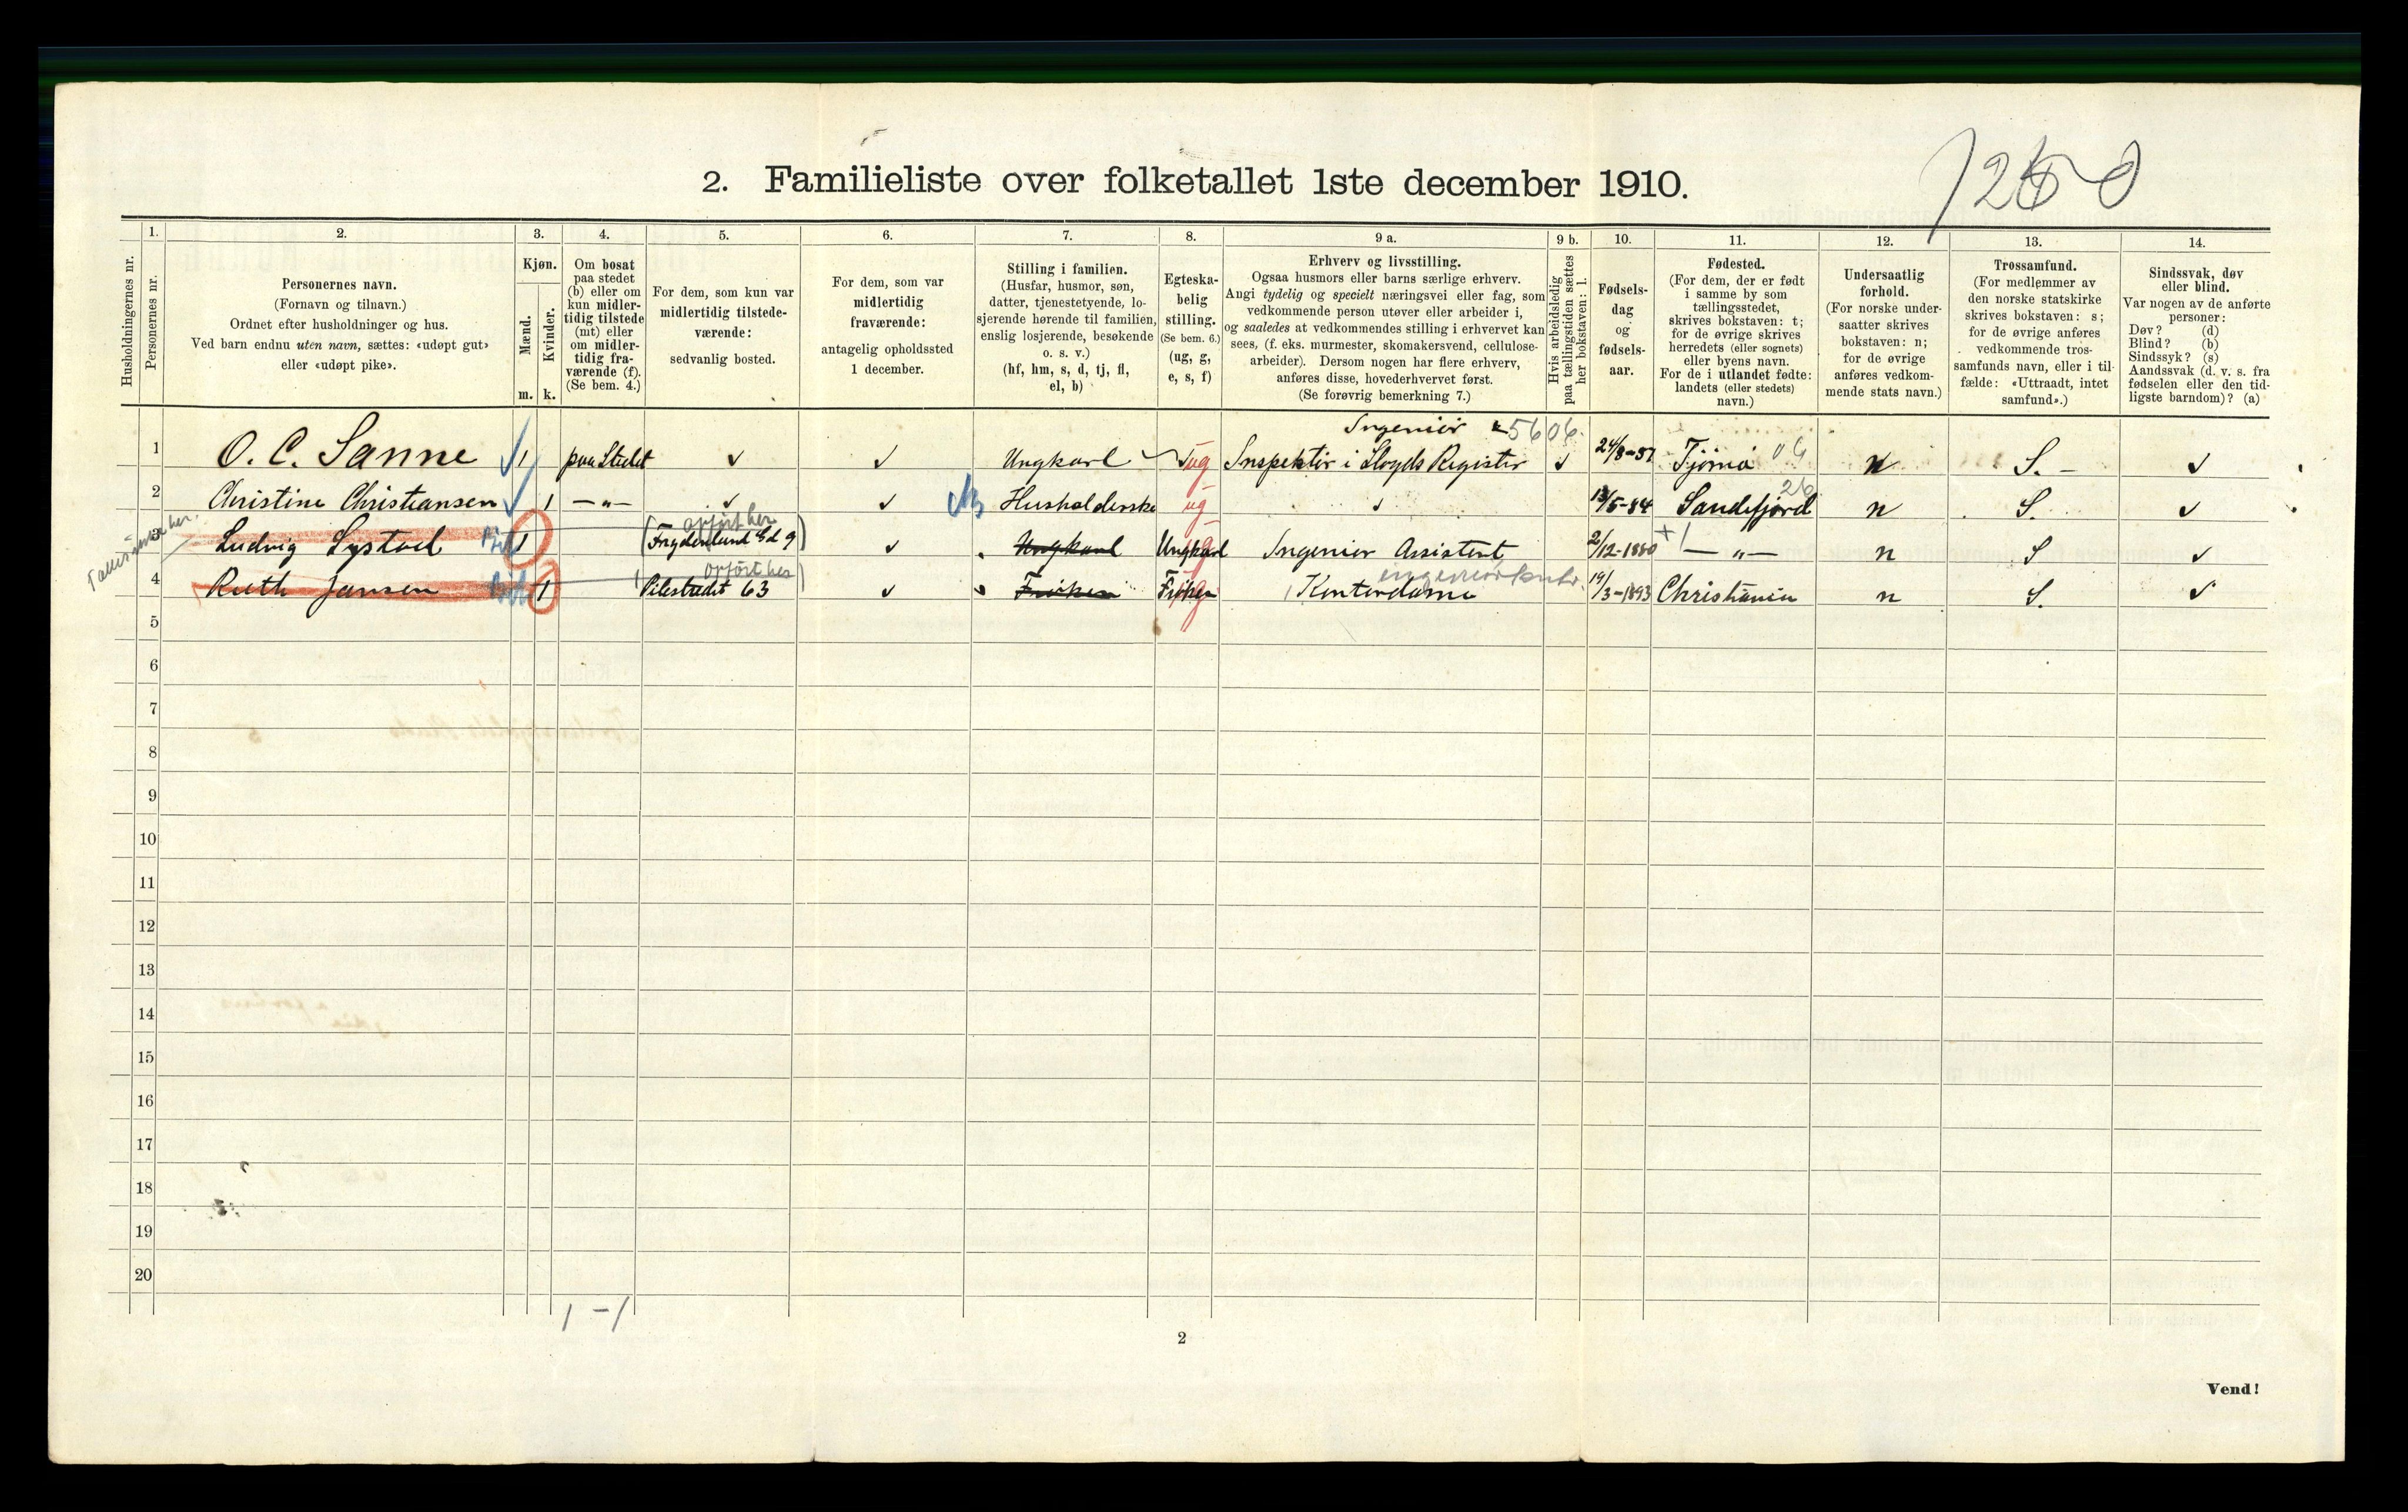 2. Familieliste over folketallet 1ste december 1910.
Husholdningernes nr.
1. Personernes nr.
2.
Personernes navn.
(Fornavn og tilnavn.)
Ordnet efter husholdninger og hus.
Ved barn endnu uten navn, sættes: «udøpt gut»
eller «udøpt pike».
3.
Kjøn.
Mænd.
Kvinder.
m. k.
4.
Om bosat
paa stedet
(b) eller om
kun midler-
tidig tilstede
(mt) eller
om midler-
tidig fra-
værende (f).
(Se bem. 4.)
5.
For dem, som kun var
midlertidig tilstede-
værende:
sedvanlig bosted.
6.
For dem, som var
midlertidig
fraværende:
antagelig opholdssted
1 december.
7.
Stilling i familien.
(Husfar, husmor, søn,
datter, tjenestetyende, lo-
sjerende hørende til familien,
enslig losjerende, besøkende
o. s. v.)
(hf, hm, s, d, tj, fl,
el, b)
8.
Egteska-
belig
stilling.
(Se bem. 6.)
(ug, g,
e, s, f)
9 a.
Erhverv og livsstilling.
Ogsaa husmors eller barns særlige erhverv.
Angi tydelig og specielt næringsvei eller fag, som
vedkommende person utøver eller arbeider i,
og saaledes at vedkommendes stilling i erhvervet kan
sees, (f. eks. murmester, skomakersvend, cellulose-
arbeider). Dersom nogen har flere erhverv,
anføres disse, hovederhvervet først.
(Se forøvrig bemerkning 7.)
9 b.
Hvis arbeidsledig
paa tællingstiden sættes
her bokstaven: l.
10.
Fødsels-
dag
og
fødsels-
aar.
11.
Fødested.
(For dem, der er født
i samme by som
tællingsstedet,
skrives bokstaven: t;
for de øvrige skrives
herredets (eller sognets)
eller byens navn.
For de i utlandet fødte:
landets (eller stedets)
navn.)
12.
Undersaatlig
forhold.
(For norske under-
saatter skrives
bokstaven: n;
for de øvrige
anføres vedkom-
mende stats navn.)
13.
Trossamfund.
(For medlemmer av
den norske statskirke
skrives bokstaven: s;
for de øvrige anføres
vedkommende tros-
samfunds navn, eller i til-
fælde: «Uttraadt, intet
samfund».)
14.
Sindssvak, døv
eller blind.
Var nogen av de anførte
personer:
Døv? (d)
Blind? (b)
Sindssyk? (s)
Aandssvak (d. v. s. fra
fødselen eller den tid-
ligste barndom)? (a)
Ingeniör 5606
1 O. C. Sanne 1 paa Stedet ✓ ✓ Ungkarl ug Inspektör i Lloyds Register ✓ 24/8-57 Tjömö 06 n S. - ✓
2 Christine Christiansen 1 — „ — ✓ ✓ Husholderske ug ✓ 13/5-84 Sandefjord 26 n S. ✓
opført her
3 Ludvig Systad 1 (Frydenlund Gd 9) ✓ Ungkarl Ungkarl Ingeniør Assistent 2/12-1880 — „ — n S ✓
opført her
4 Ruth Jansen 1 Pilestrædet 63 ✓ Frøken Frøken Kontordame 19/3-1893 Christiania n S. ✓
5
6
7
8
9
10
11
12
13
14
15
16
17
18
19
20
1 - 1
2
Vend!